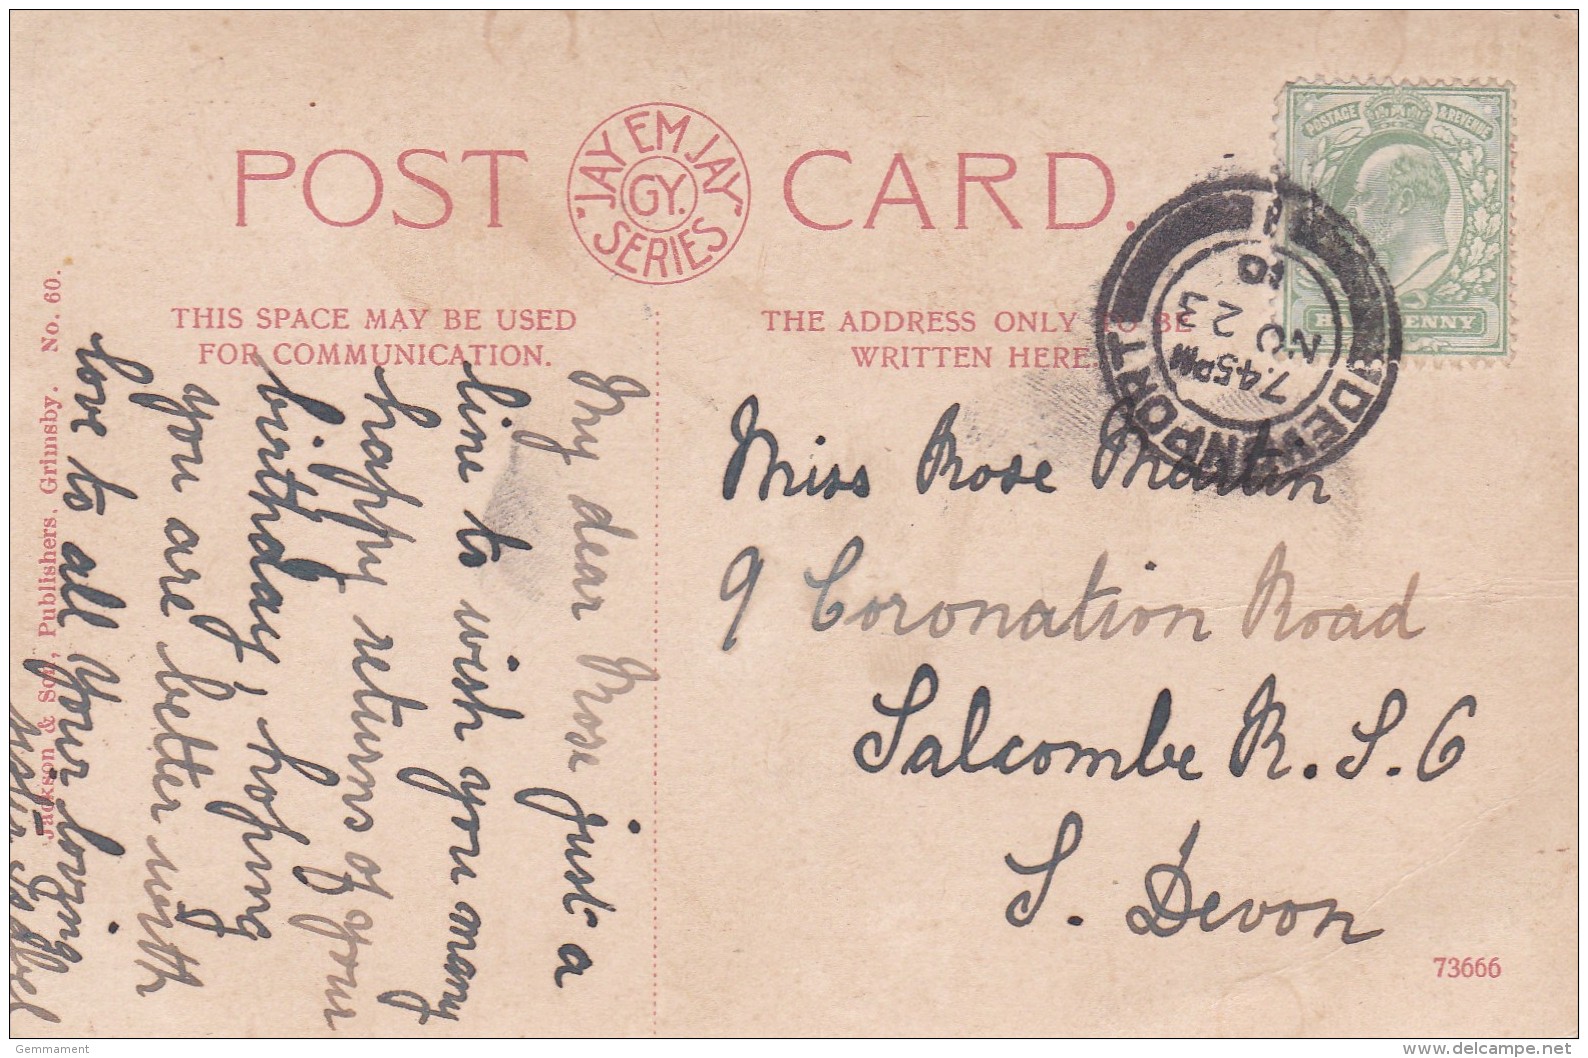 POST CARD.
"JAY EM JAY" SERIES
GY.
THIS SPACE MAY BE USED
FOR COMMUNICATION.
THE ADDRESS ONLY TO BE
WRITTEN HERE.
POSTAGE & REVENUE
HALFPENNY
DEVONPORT
7.45PM
NO 23
10
My dear Rose just a
line to wish you many
happy returns of your
birthday, hoping
you are better with
love to all Your loving
Miss Rose Martin
9 Coronation Road
Salcombe R.S.O
S. Devon
Jackson & Son, Publishers, Grimsby. No. 60.
73666
Gemmament
www.delcampe.net